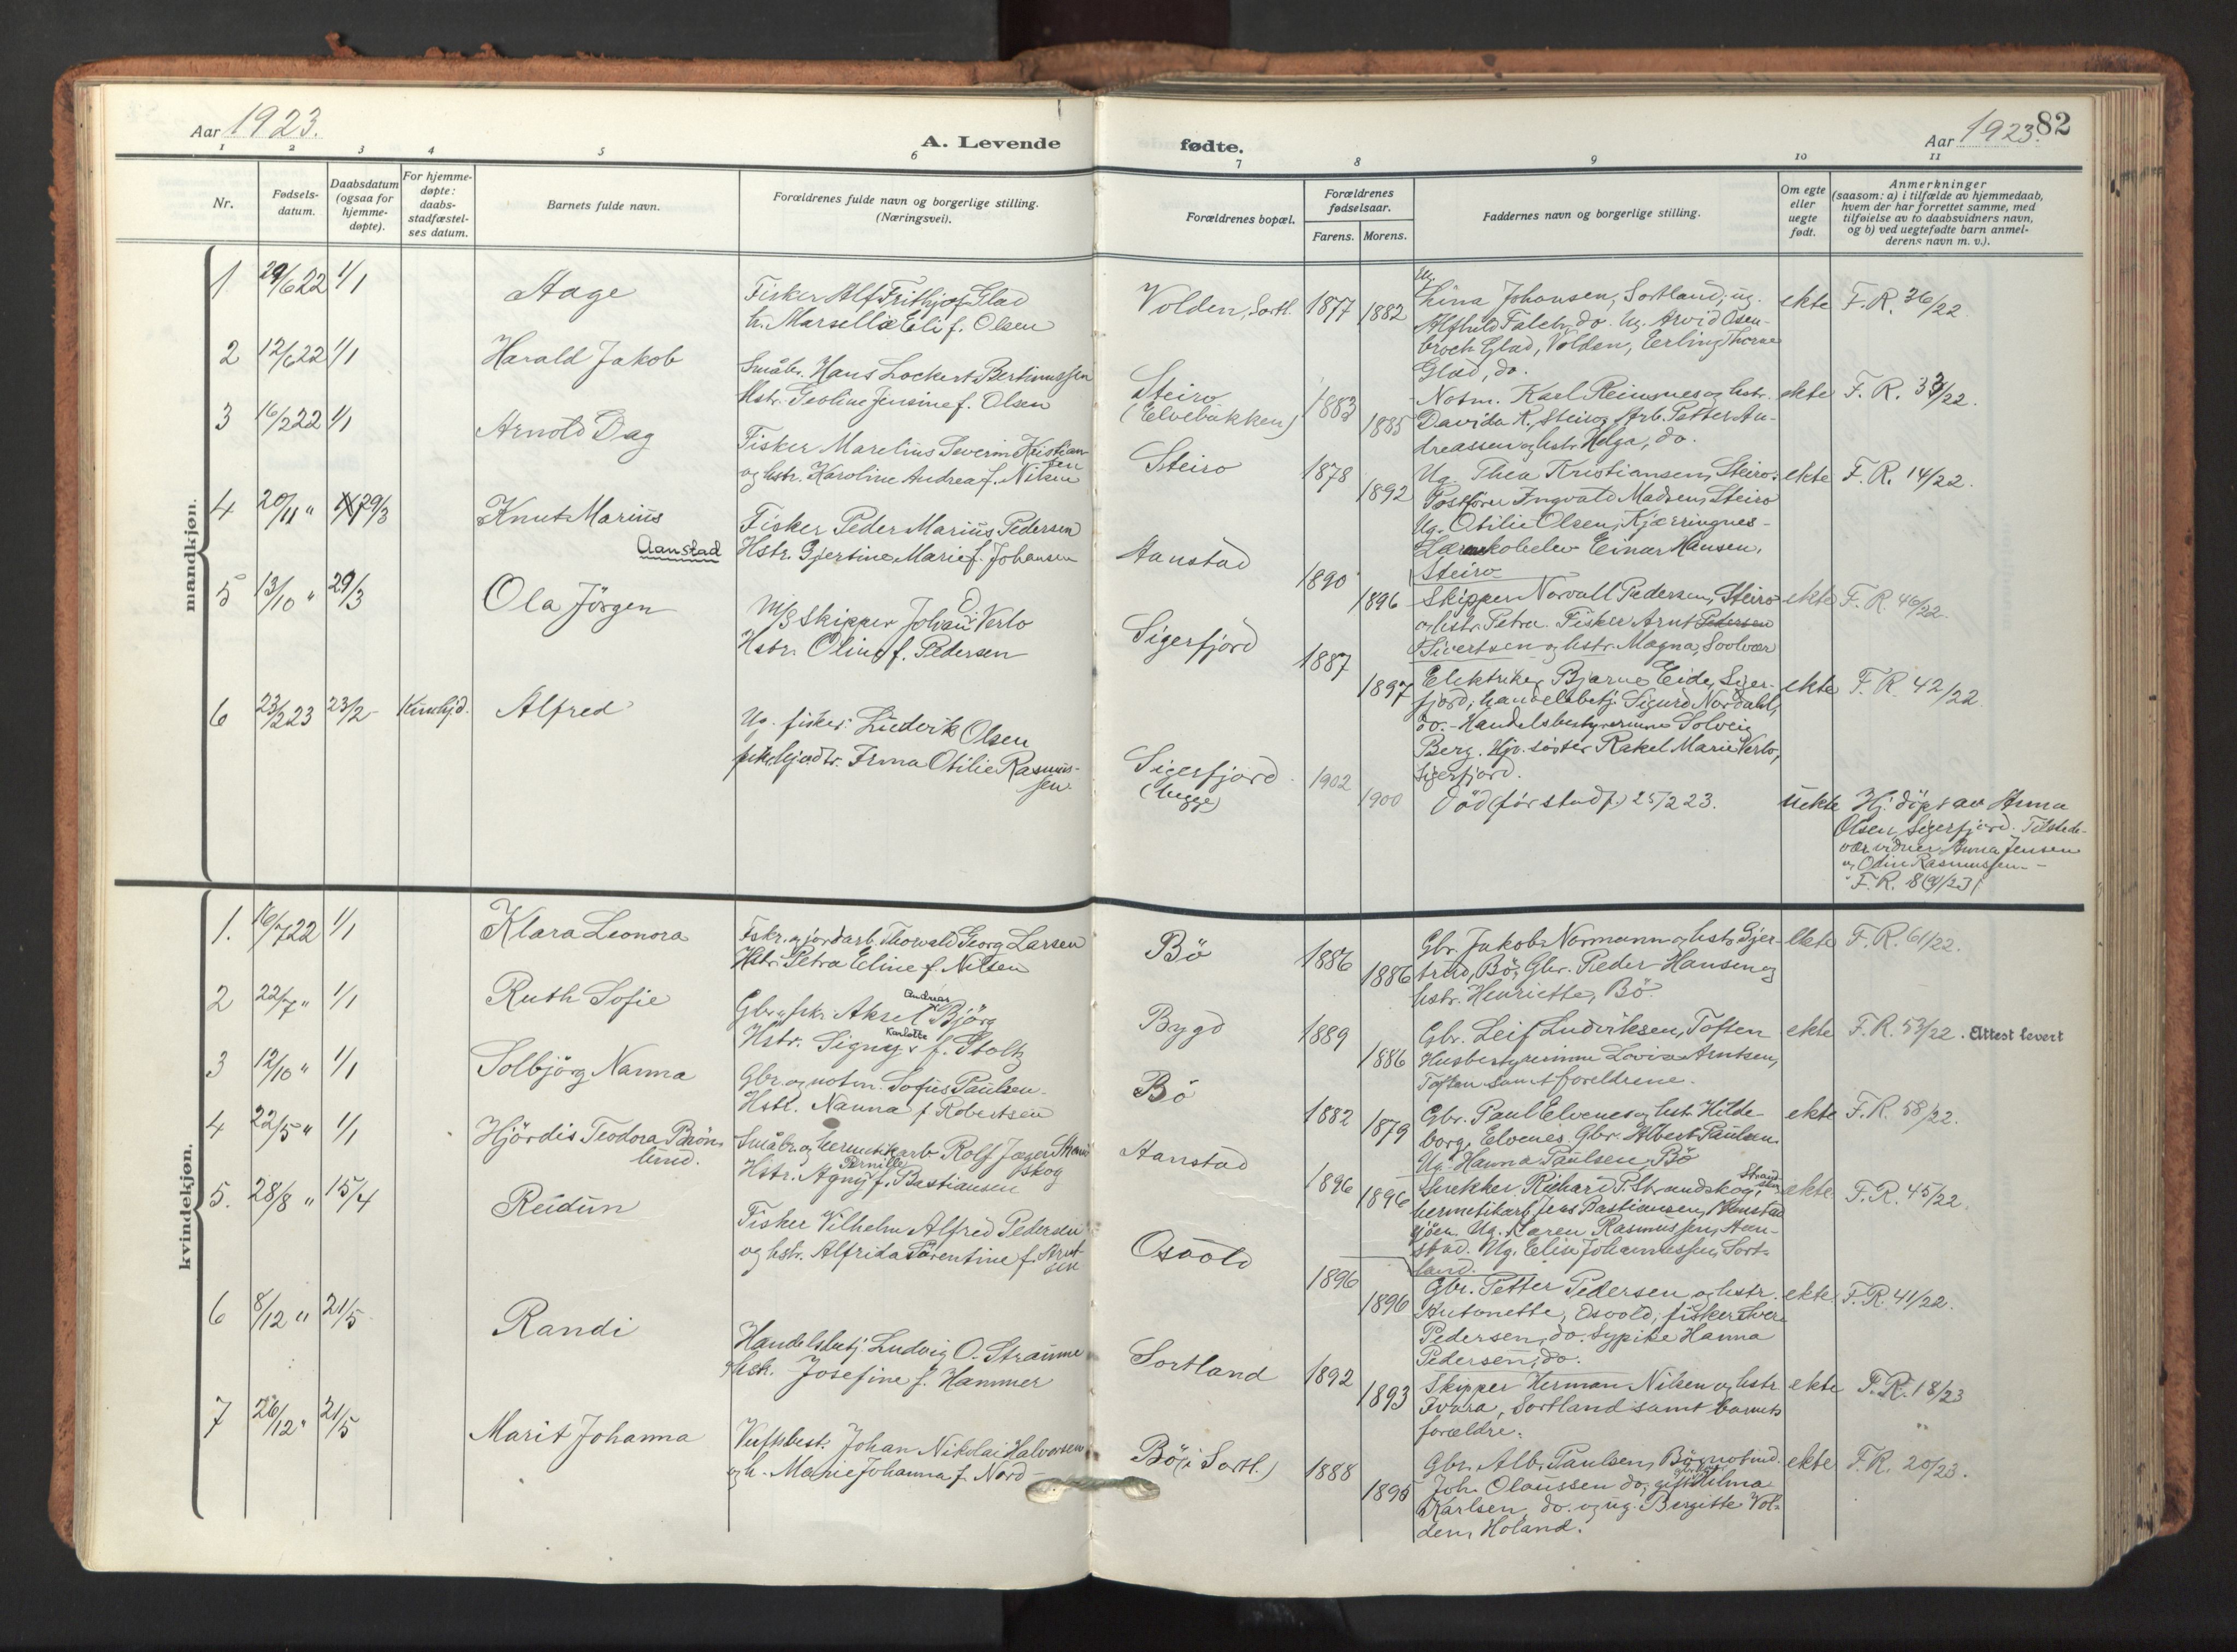 Aar 1923.
A. Levende
fødte.
Aar 1923.
82
1 2 3 4 5 6 7 8 9 10 11
Nr.
Fødsels-
datum.
Daabsdatum
(ogsaa for
hjemme-
døpte).
For hjemme-
døpte:
daabs-
stadfæstel-
ses datum.
Barnets fulde navn.
Forældrenes fulde navn og borgerlige stilling.
(Næringsvei).
Forældrenes bopæl.
Forældrenes
fødselsaar.
Farens. Morens.
Faddernes navn og borgerlige stilling.
Om egte
eller
uegte
født.
Anmerkninger
(saasom: a) i tilfælde av hjemmedaab,
hvem der har forrettet samme, med
tilføielse av to daabsvidners navn,
og b) ved uegtefødte barn anmel-
derens navn m. v.).
mandkjøn.
1 29/6 22 1/1 Aage
Fisker Alf Frithjof Glad
h. Marsellie Eli f. Olsen
Volden, Sortl. 1877 1882
Ug. Lina Johansen, Sortland, ug.
Alfhild Falch, do. Ug. Arvid Osen-
broch Glad, Volden, Erling Thorne
Glad, do.
ekte F.R. 36/22.
2 12/6 22 1/1 Harald Jakob
Småbr. Hans Lockert Bertinussen
Hstr. Seoline Jensine f. Olsen
Steiro
(Elvebakken) 1883 1885
Notm. Karl Reinsnes og hstr.
Davida R., Steiro, Arb. Petter An-
dreassen og hstr. Helga, do.
ekte F.R. 33/22.
3 16/2 22 1/1 Arnold Dag
Fisker Marelius Severin Kristian-
sen
og hstr. Karoline Andrea f. Nilsen
Steiro 1878 1892
Ug. Thea Kristiansen, Steiro.
Postfører Ingvald Madsen, Steiro
Ug. Otilie Olsen, Kjærringnes-
Lærerskoleelev Einar Hansen,
Steiro
ekte F.R. 14/22.
4 20/11 " 29/3 Knut Marius
Aanstad
Fisker Peder Marius Pedersen
Hstr. Gjertine Marie f. Johansen
Aanstad 1890 1896
Skipper Norvall Pedersen, Steiro
og hstr. Petra. Fisker Arnt Pedersen
Sivertsen og hstr. Magna, Svolvær
ekte F.R. 46/22.
5 13/10 " 29/3 Ola Jörgen
M/S skipper Johan O. Verlo
Hstr. Oline f. Pedersen
Sigerfjord 1887 1897
Elektriker Bjarne Eide, Siger-
fjord, handelsbetj. Sigurd Nordahl,
do. - Handelsbestyrerinne Solveig
Berg. Hjv. søster Rakel Marie Verlo,
Sigerfjord.
ekte F.R. 42/22
6 23/2 23 23/2 Kunhjd. Alfred
Ug. fisker Ludvik Olsen
pike, hjadtr. Irma Otilie Rasmus-
sen
Sigerfjord
(begge) 1902 1900
Död (för stadf.) 25/2 23.
uekte Hj. döpt av Anna
Olsen, Sigerfjord. Tilstede-
vær. vidner, Anna Jensen
og Odin Rasmussen.-
F.R. 8(9)/23
kvindekjøn.
1. 16/7 22 1/1 Klara Leonora
Fskr. og jordarb. Thorvald Georg Larsen
Hstr. Petra Eline f. Nilsen
Bö 1886 1886
Gbr. Jakob Normann og hstr. Gjer-
trud, Bö, Gbr. Peder Hansen og
hstr. Henriette, Bö.
ekte F.R. 61/22.
2 22/7 " 1/1 Ruth Sofie
Gbr. og fskr. Aksel Andreas Björg
Hstr. Signy Karlotte f. Stoltz
Bygd 1889 1886
Gbr. Leif Ludviksen, Toften
Husbestyrerinne Lovise Arntsen,
Toften samt foreldrene.
ekte F.R. 53/22. Attest levert
3 12/10 " 1/1 Solbjörg Nanna
Gbr. og notm. Sofus Paulsen
Hstr. Nanna f. Robertsen
Bö 1882 1879
Gbr. Paul Elvenes og hstr. Hilde-
borg, Elvenes. Gbr. Albert Paulsen.
Ug. Hanna Paulsen, Bö
ekte F.R. 58/22.
4 22/5 " 1/1 Hjördis Teodora Brön-
lund.
Småbr. og hermetikarb. Rolf Jæger Strand-
skog
Hstr. Agny Pernille f. Bastiansen
Aanstad 1896 1896
Snekker Richard P. Strandskog, Strandskog
hermetikarb. Jens Bastiansen, Aanstad
sjöen. Ug. Karen Rasmussen, Aan-
stad. Ug. Elise Johannessen, Sort-
land.
ekte F.R. 45/22.
5. 28/8 " 15/4 Reidun
Fisker Vilhelm Alfred Pedersen
og hstr. Alfrida Sörentine f. Arnt-
sen
Osvold 1896 1896
Gbr. Petter Pedersen og hstr.
Antonette, Osvold, fisker Ivar
Pedersen, do. Sypike Hanna
Pedersen, do.
ekte F.R. 41/22.
6 8/12 " 21/5 Randi
Handelsbetj. Ludvig O. Straume
Hstr. Josefine f. Hammer
Sortland 1892 1893
Skipper Herman Nilsen og hstr
Ivara, Sortland samt barnets
forældre.
ekte F.R. 18/23
7 26/12 " 21/5 Marit Johanna
Verftsbest. Johan Nikolai Halvorsen
og h. Marie Johanna f. Nord-
Bö (i Sortl.) 1888 1895
Gbr. Alb. Paulsen, Bö, notind.
Joh. Olaussen do, gift Hilma
Karlsen, do. og ug. Bergitte Vol-
den, Holand.
ekte F.R. 20/23.